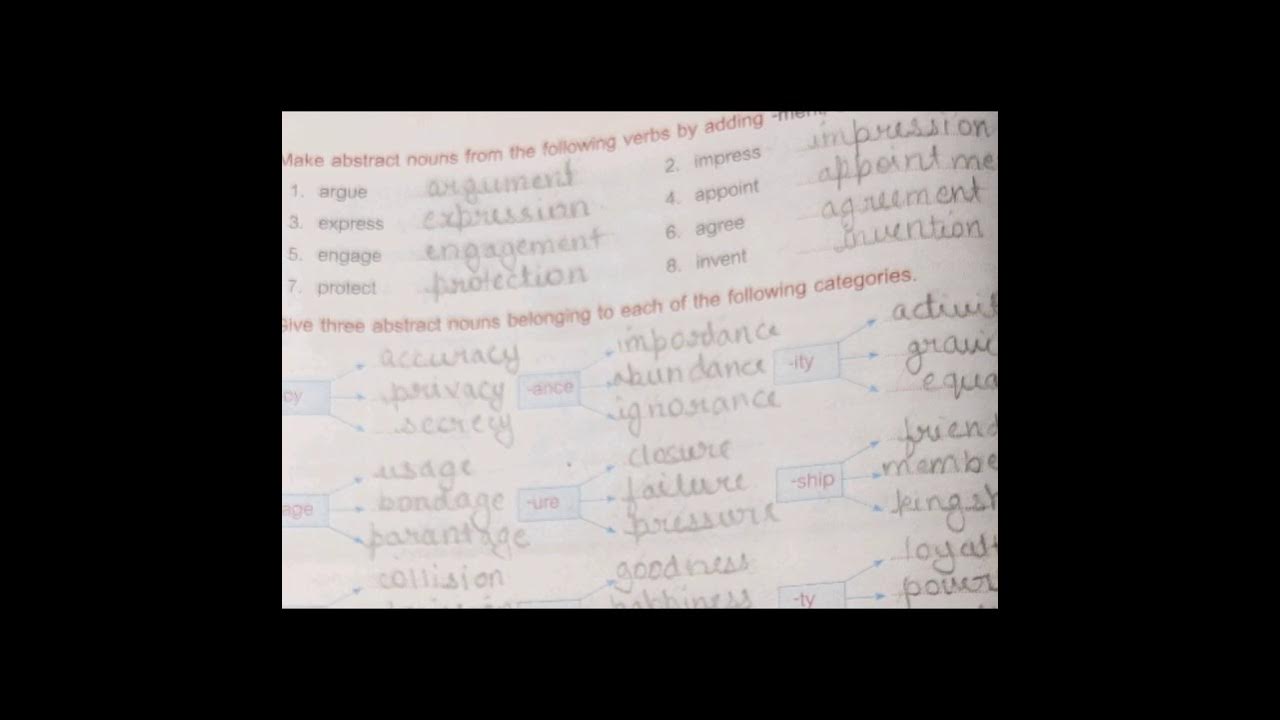 Make abstract nouns from the following verbs by adding -ment,
1. argue argument 2. impress impression
3. express expression 4. appoint appointme
5. engage engagement 6. agree agreement
7. protect protection 8. invent invention
Give three abstract nouns belonging to each of the following categories.
cy accuracy privacy secrecy
-ance impordance abundance ignorance
-ity activit gravi equa
age usage bondage parantage
-ure closure failure pressure
-ship friend membe kingsh
collision
goodness happiness
-ty loyalt power